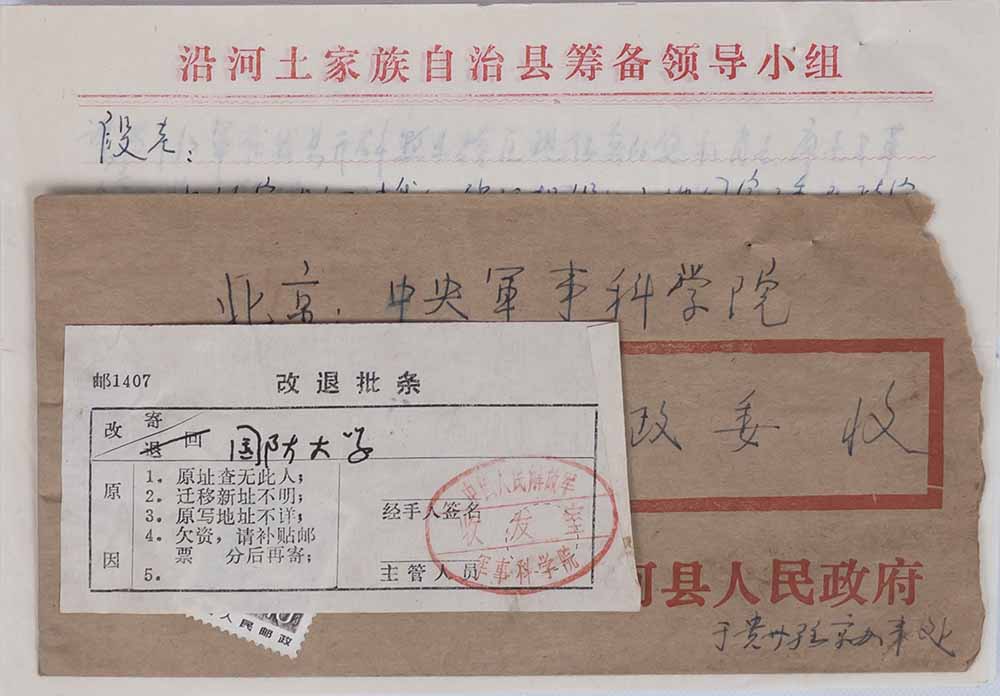 沿河土家族自治县筹备领导小组
段老：
北京：中央軍事科学院
政委 收
邮1407
改退批条
改 寄 退 回 国防大学
原因
1. 原址查无此人；
2. 迁移新址不明；
3. 原写地址不详；
4. 欠资，请补贴邮
票 分后再寄；
5.
经手人签名
主管人员
中国人民解放军
收发室
军事科学院
人民邮政
河县人民政府
于贵州驻京办事处